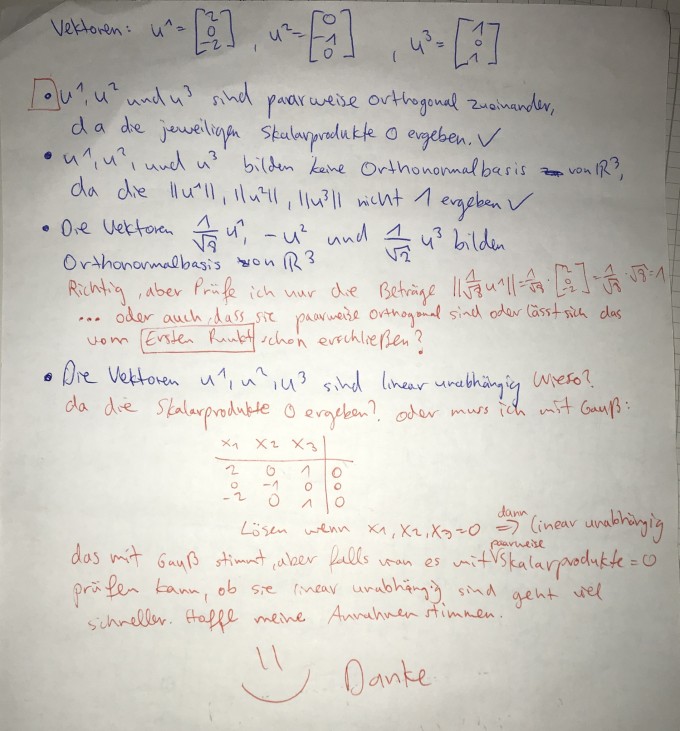 Vektoren: u¹ = [2 0 -2] , u² = [0 -1 0] , u³ = [1 0 1]
• u¹, u² und u³ sind paarweise orthogonal zueinander,
da die jeweiligen Skalarprodukte 0 ergeben. ✓
• u¹, u², und u³ bilden keine Orthonormalbasis von ℝ³,
da die ||u¹||, ||u²||, ||u³|| nicht 1 ergeben ✓
• Die Vektoren 1/√8 u¹, -u² und 1/√2 u³ bilden
Orthonormalbasis von ℝ³
Richtig, aber Prüfe ich nur die Beträge ||1/√8 u¹|| = 1/√8 · [2 0 -2] = 1/√8 · √8 = 1
... oder auch, dass sie paarweise orthogonal sind oder lässt sich das
vom Ersten Punkt schon erschließen?
• Die Vektoren u¹, u², u³ sind linear unabhängig Wieso?
da die Skalarprodukte 0 ergeben? oder muss ich mit Gauß:
x₁ x₂ x₃
2 0 1 | 0
0 -1 0 | 0
-2 0 1 | 0
Lösen wenn x₁, x₂, x₃ = 0 dann ⇒ linear unabhängig
das mit Gauß stimmt, aber falls man es mit paarweise Skalarprodukte = 0
prüfen kann, ob sie linear unabhängig sind geht viel
schneller. Hoffe meine Annahmen stimmen.
Danke